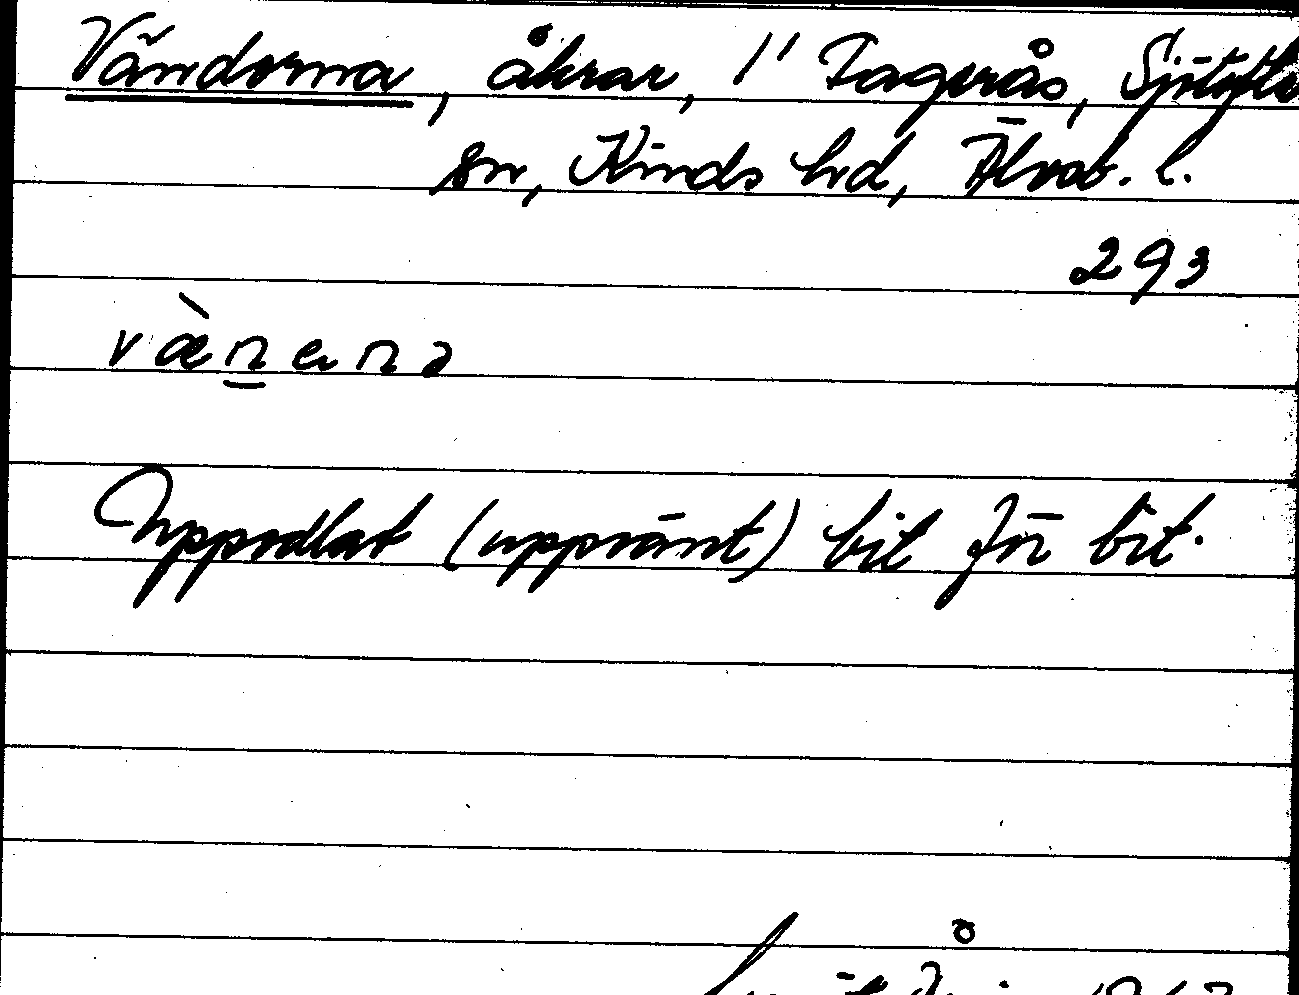 Vändorna, åkrar, 1" Fagerås, Sjötofta
sn, Kinds hd, Älvsb. l.
293
væ̀n̲ɐnɐ
Uppodlat (uppvänt) bit för bit.